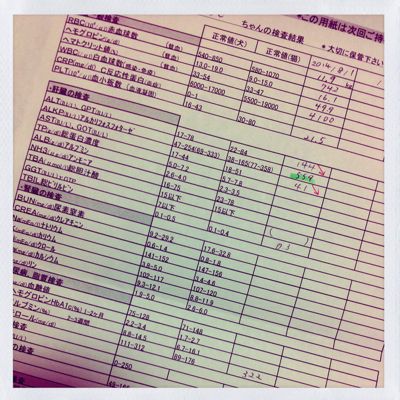 ちゃんの検査結果
この用紙は次回ご持
*大切に保管下さい
検査 正常値(犬) 正常値(猫) 2014/8/1
RBC 赤血球数 540-850 580-1070 743
ヘモグロビン (貧血) 13.0-19.0 8.0-15.0 16.1
ヘマトクリット値(%) (貧血) 33-54 33-47 49.9
WBC 白血球数(感染・炎症) 6000-17000 5500-19000 4100
CRP(mg/dl) C反応性蛋白 0-1
PLT 血小板数 (血液凝固) 16-43 30-80 21.5
肝臓の検査
ALT(IU/L), GPT(IU/L) 17-78 22-84 144
ALKP アルカリフォスファターゼ 47-254(69-333) 38-165(77-358) 554
AST(IU/L), GOT(IU/L) 17-44 18-51
TP 総蛋白濃度 5.0-7.2 5.7-7.8 4.1
ALB アルブミン 2.6-4.0 2.3-3.5
NH3 アンモニア 16-75 23-78
TBA 総胆汁酸 15以下 15以下
GGT γGTP
TBIL 総ビリルビン 0.1-0.5 0.1-0.4 0.3
腎臓の検査
BUN 尿素窒素 9.2-29.2 17.6-32.8
CREA クレアチニン 0.6-1.4 0.8-1.8
ナトリウム 141-152 147-156
カリウム 3.8-5.0 3.4-4.6
クロール 102-117 107-120
カルシウム 9.3-12.1 8.8-11.9
リン 1.9-5.0 2.6-6.0
尿病, 脂質検査
血糖値 75-128 71-148
ヘモグロビンHbA1c(%) 1-2ヶ月
ルブミン 2-3週間 2.2-3.4 1.7-2.7
8.6-14.5 6.7-16.1
ロール 111-312 89-176 322
0-250